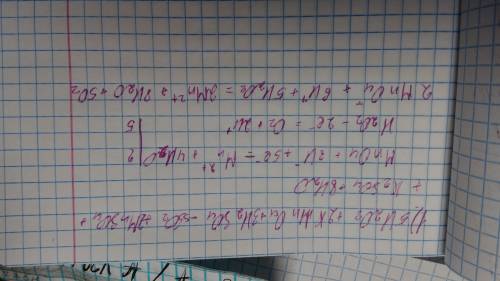 1) 5H2O2 + 2KMnO4 + 3H2SO4 = 5O2 + 2MnSO4 +
+ K2SO4 + 8H2O
MnO4 + 8H+ + 5e- = Mn2+ + 4H2O | 2
H2O2 - 2e- = O2 + 2H+ | 5
2MnO4- + 6H+ + 5H2O2 = 2Mn2+ + 8H2O + 5O2